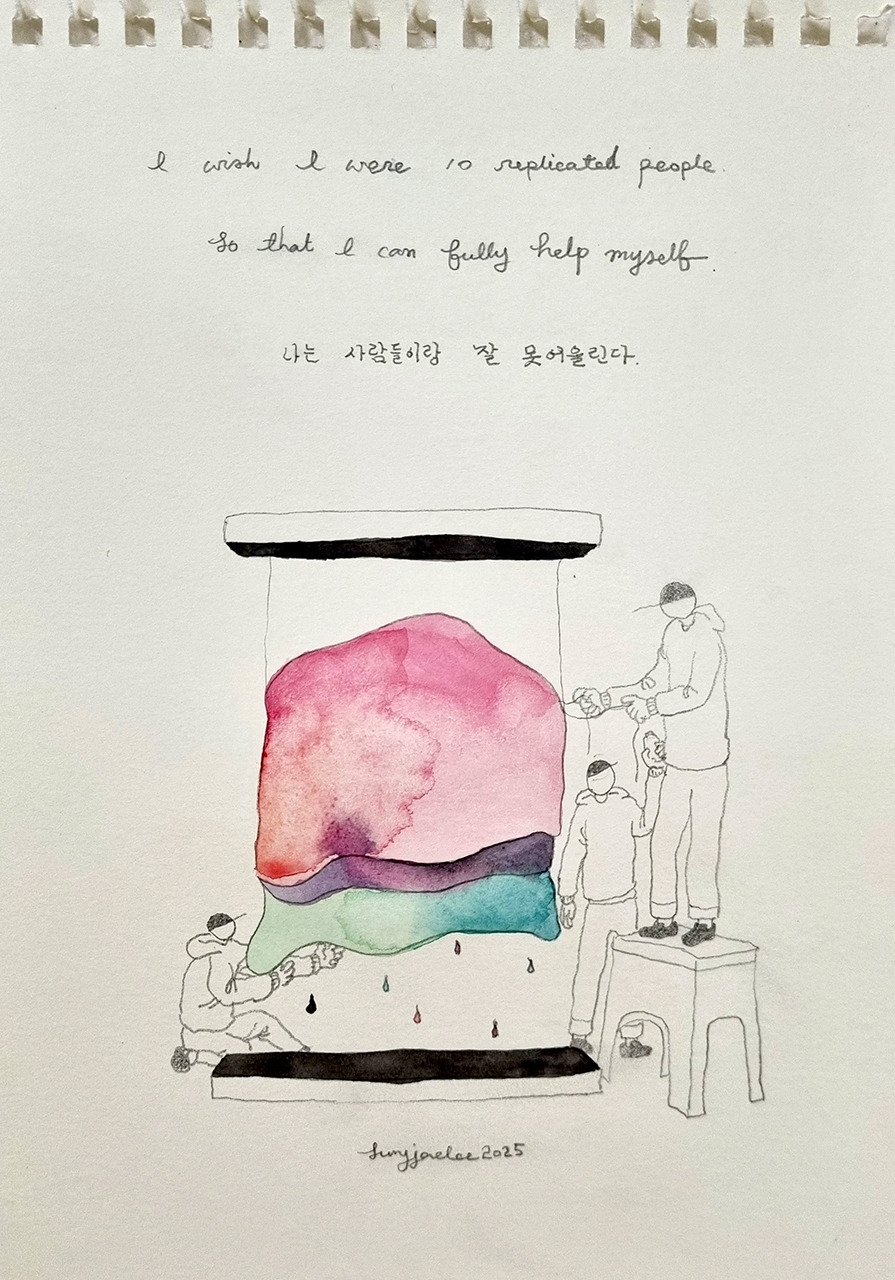 I wish I were 10 replicated people.
So that I can fully help myself.
나는 사람들이랑 잘 못어울린다.
sungjaelee 2025